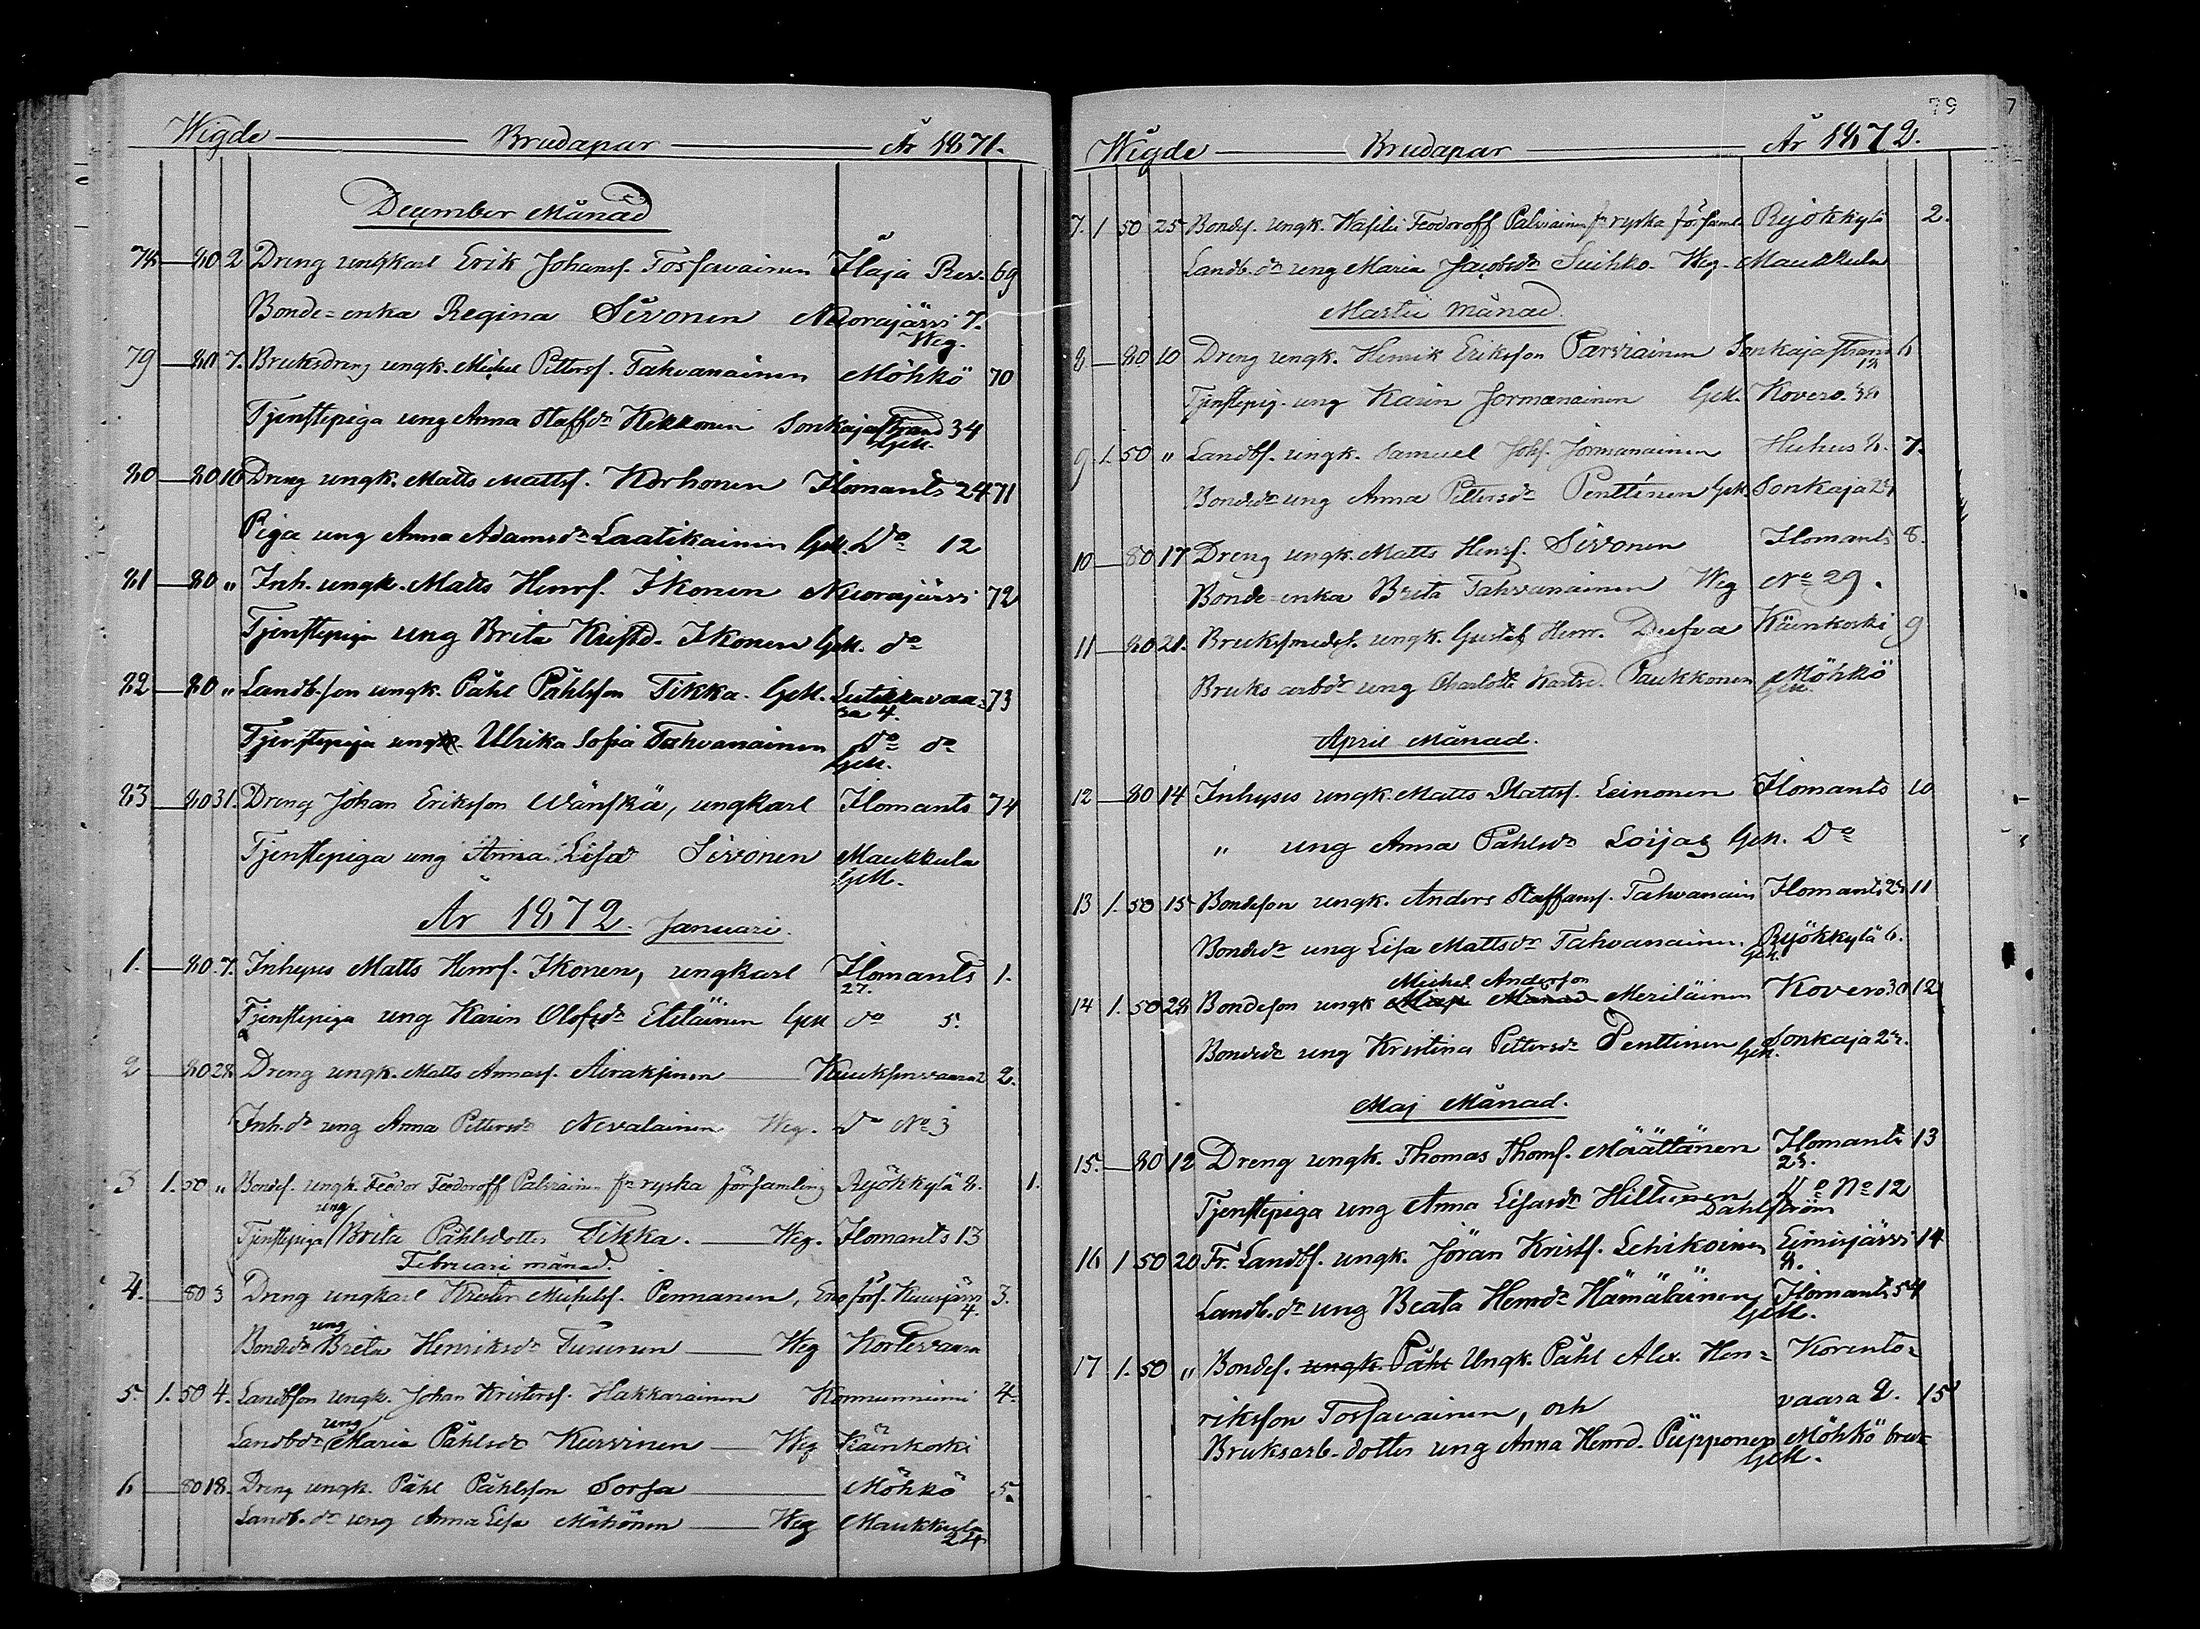 Wigde Brudapar År 1871.
December Månad
78 80 2 Dreng ungkarl Erik Johansf. Tossavainen Ilaja Res. 69
Bonde-enka Regina Sivonen Nuorajärvi 7.
Weg.
79 80 7. Bruksdreng ungk. Michel Pettersf. Tahvanainen Möhkö 70
Tjenstepiga ung Anna Staffsdr Kekkonen Sonkajastrand 34
GeM.
80 80 10 Dreng ungk. Matts Mattsf. Korhonen Ilomants 24 71
Piga ung Anna Adamsdr Laatikainen GeM. Do 12
81 80 " Inh. ungk. Matts Henrf. Ikonen Nuorajärvi 72
Tjenstepiga ung Brita Kristd. Ikonen GeM. do
82 80 " Landb.son ungk. Påhl Påhlsson Tikka. GeM. Leutikkavaa- 73
ra 4.
Tjenstepiga ung Ulrika Sofia Tahvanainen Do do
GeM.
83 80 31. Dreng Johan Eriksson Wänskä, ungkarl Ilomants 74
Tjenstepiga ung Anna Lisa Sivonen Maukkula
GeM.
År 1872. Januari.
1. 80 7. Inhyses Matts Henrf. Ikonen, ungkarl Ilomants 1.
27.
Tjenstepiga ung Karin Olofsdr Eteläinen GeM do 5.
2 80 28 Dreng ungk. Matts Annasf. Airaksinen Kuuksenvaara 2 2.
Inh.dr ung Anna Pettersdr Nevalainen Weg. Do No 3
3 1. 50 " Bondes. ungk. Feodor Feodoroff Palviainen fr ryska församling Ryökkylä 8. 1.
ung
Tjenstepiga Brita Påhlsdotter Tikka. Weg. Ilomants 13
Februari månad.
4. 80 3 Dreng ungkarl Krister Michelsf. Pennanen, Eno förs. Kuusjärvi 3.
4.
ung
Bondedr Brita Henriksdr Turunen Weg Kortevaara
5. 1. 50 4. Landbson ungk. Johan Kristersf. Hakkarainen Konnunniemi 4.
ung
Landbdr Maria Påhlsdr Kurvinen Weg Käenkoski
6 80 18. Dreng ungk. Påhl Påhlsson Sorsa Möhkö 5.
Landb.dr ung Anna Lisa Mähönen Weg Maukkula
24
79
Wigde Brudapar År 1872.
7. 1 50 25 Bondes. ungk. Wasilei Feodoroff Palviainen fr ryska församl. Ryökkylä 2.
Landb.dr ung Maria Jacobsdr Suihko. Weg. Maukkula
Martii månad.
8 80 10 Dreng ungk. Henrik Eriksson Parviainen Sonkajastrand 6
12
Tjenstepig. ung Karin Jormanainen GeM. Kovero. 38
9 1. 50 " Landbs. ungk. Samuel Johs. Jormanainen Huhus 8. 7.
Bondedr ung Anna Pettersdr Penttinen GeM. Sonkaja 21
10 80 17 Dreng ungk. Matts Henrf. Sivonen Ilomants 8.
Bonde-enka Brita Tahvanainen Weg No 29.
11 80 21. Bruksmedsf. ungk. Gustaf Henr. Dufva Käenkoski 9
Bruks arbdr ung Charlotta Karlsd. Paukkonen Möhkö
GeM.
April Månad.
12 80 14 Inhyses ungk. Matts Mattsf. Leinonen Ilomants 10
" ung Anna Påhlsdr Loijas GeM. Do
13 1. 50 15 Bondeson ungk. Anders Staffansf. Tahvanain Ilomants 28 11
Bondedr ung Lisa Mattsdr Tahvanainen. Ryökkylä 6.
GeM.
Michel Andersson
14 1. 50 28 Bondeson ungk Meriläinen Kovero 30 12
Bondedr ung Kristina Pettersdr Penttinen Sonkaja 22.
GeM.
Maj Månad.
15. 80 12 Dreng ungk. Thomas Thomf. Määttänen Ilomants 13
23.
Tjenstepiga ung Anna Lisasdr Hiltunen Do No 12
Dahlström
16 1 50 20 Fr. Landbf. ungk. Jöran Kristf. Lehikoinen Eimisjärvi 14
8.
Landb.dr ung Beata Henrdr Hämäläinen Ilomants 54
GeM.
17 1. 50 " Bondes. ungk. Påhl Ungk. Påhl Alex. Hen= Korento=
riksson Tossavainen, och vaara 2. 15
Bruksarb.dotter ung Anna Henrd. Piipponen Möhkö bruk
GeM.